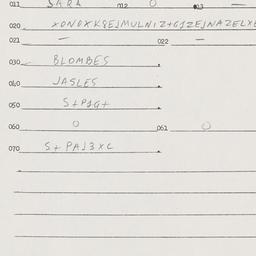 011 SARA 012 0 013 —
020 XONOXK8EJMULNIZ+G1ZEJNAZELXE
021 — 022 —
030 BLOMBES
040 JASLES
050 S+P1G+
060 0 061 0
070 S+PA13XC